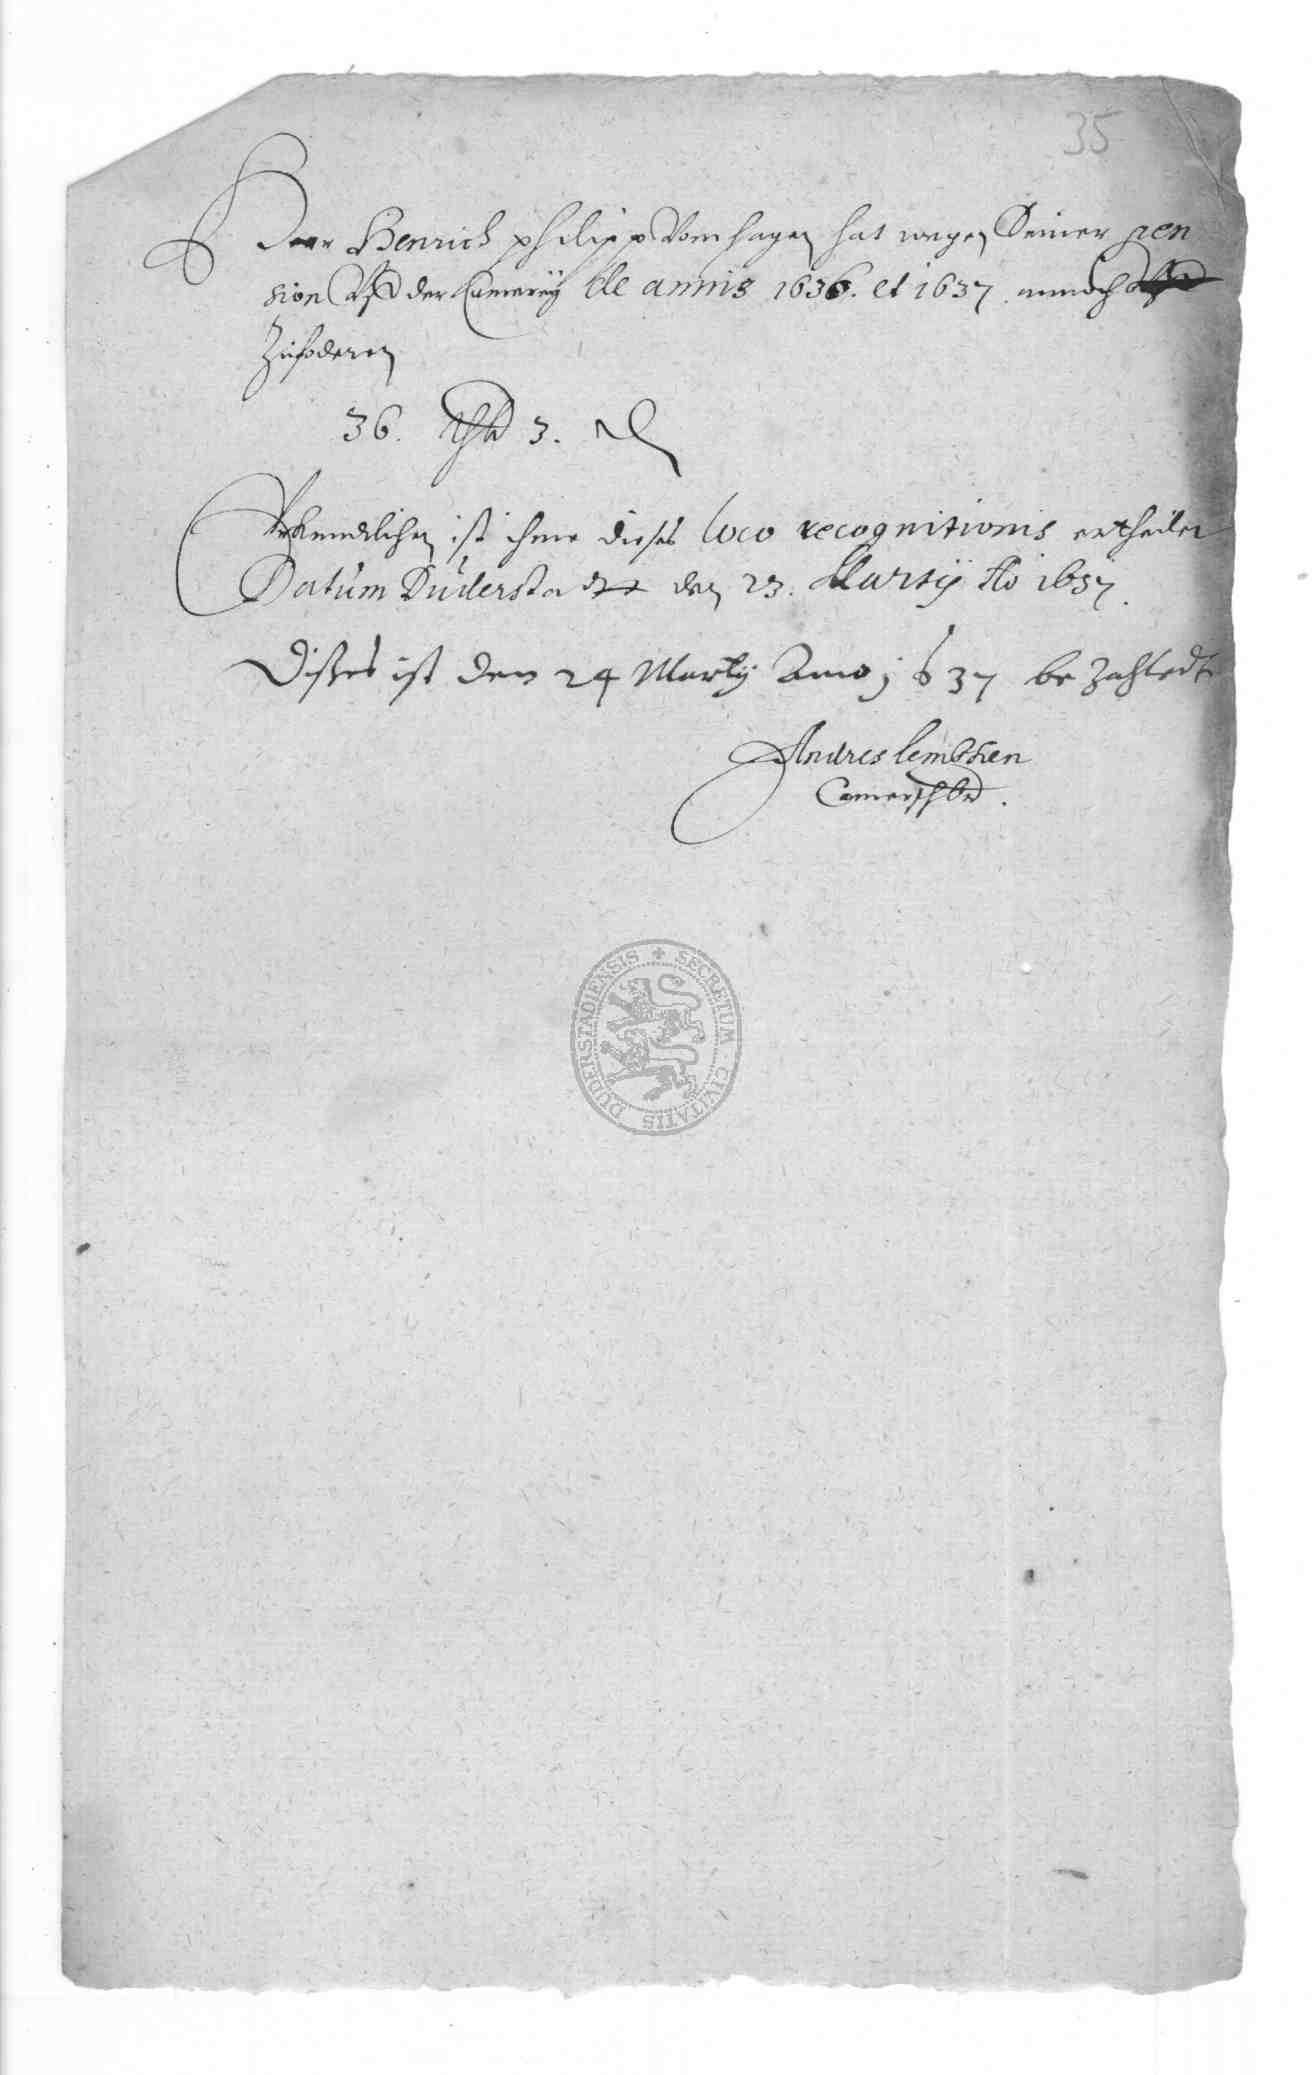 35
Herr Henrich philipp Vom hagen hat wegen Seiner pen
sion Vff der Cammereÿ de annis 1636. et 1637. annoch
Zufoderen
36. thlr 3.
Vhrkundtlichen ist ihme dieses loco recognitionis ertheilet
Datum Duderstadt den 23. Martÿ Ao 1637.
Dißes ist den 24 Martÿ Anno j 6 37 be Zahledt
Andres lembken
SECRETUM CIVITATIS DUDERSTADIENSIS